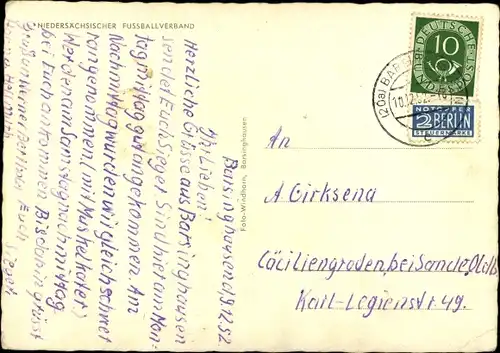 NIEDERSÄCHSISCHER FUSSBALLVERBAND
Barsinghausen d. 9.12.52
Ihr Lieben!
Herzliche Grüsse aus Barsinghausen
sendet Euch Siegel. Sind hier am Mon-
tagmittag gut angekommen. Am
Nachmittag wurden wir gleich schwer
rangenommen. (mit Muskelkater)
Werden am Samstagnachmittag
bei Euch ankommen. Bis dahin grüsst
Euch
Foto-Windhorn, Barsinghausen
DEUTSCHE BUNDESPOST
10
(20a) BARSINGHAUSEN
10.12.52
c
NOTOPFER
2 BERLIN
STEUERMARKE
An
A. Cirksena
Cäciliengroden, bei Sande, Oldb
Karl-Legienstr. 49.